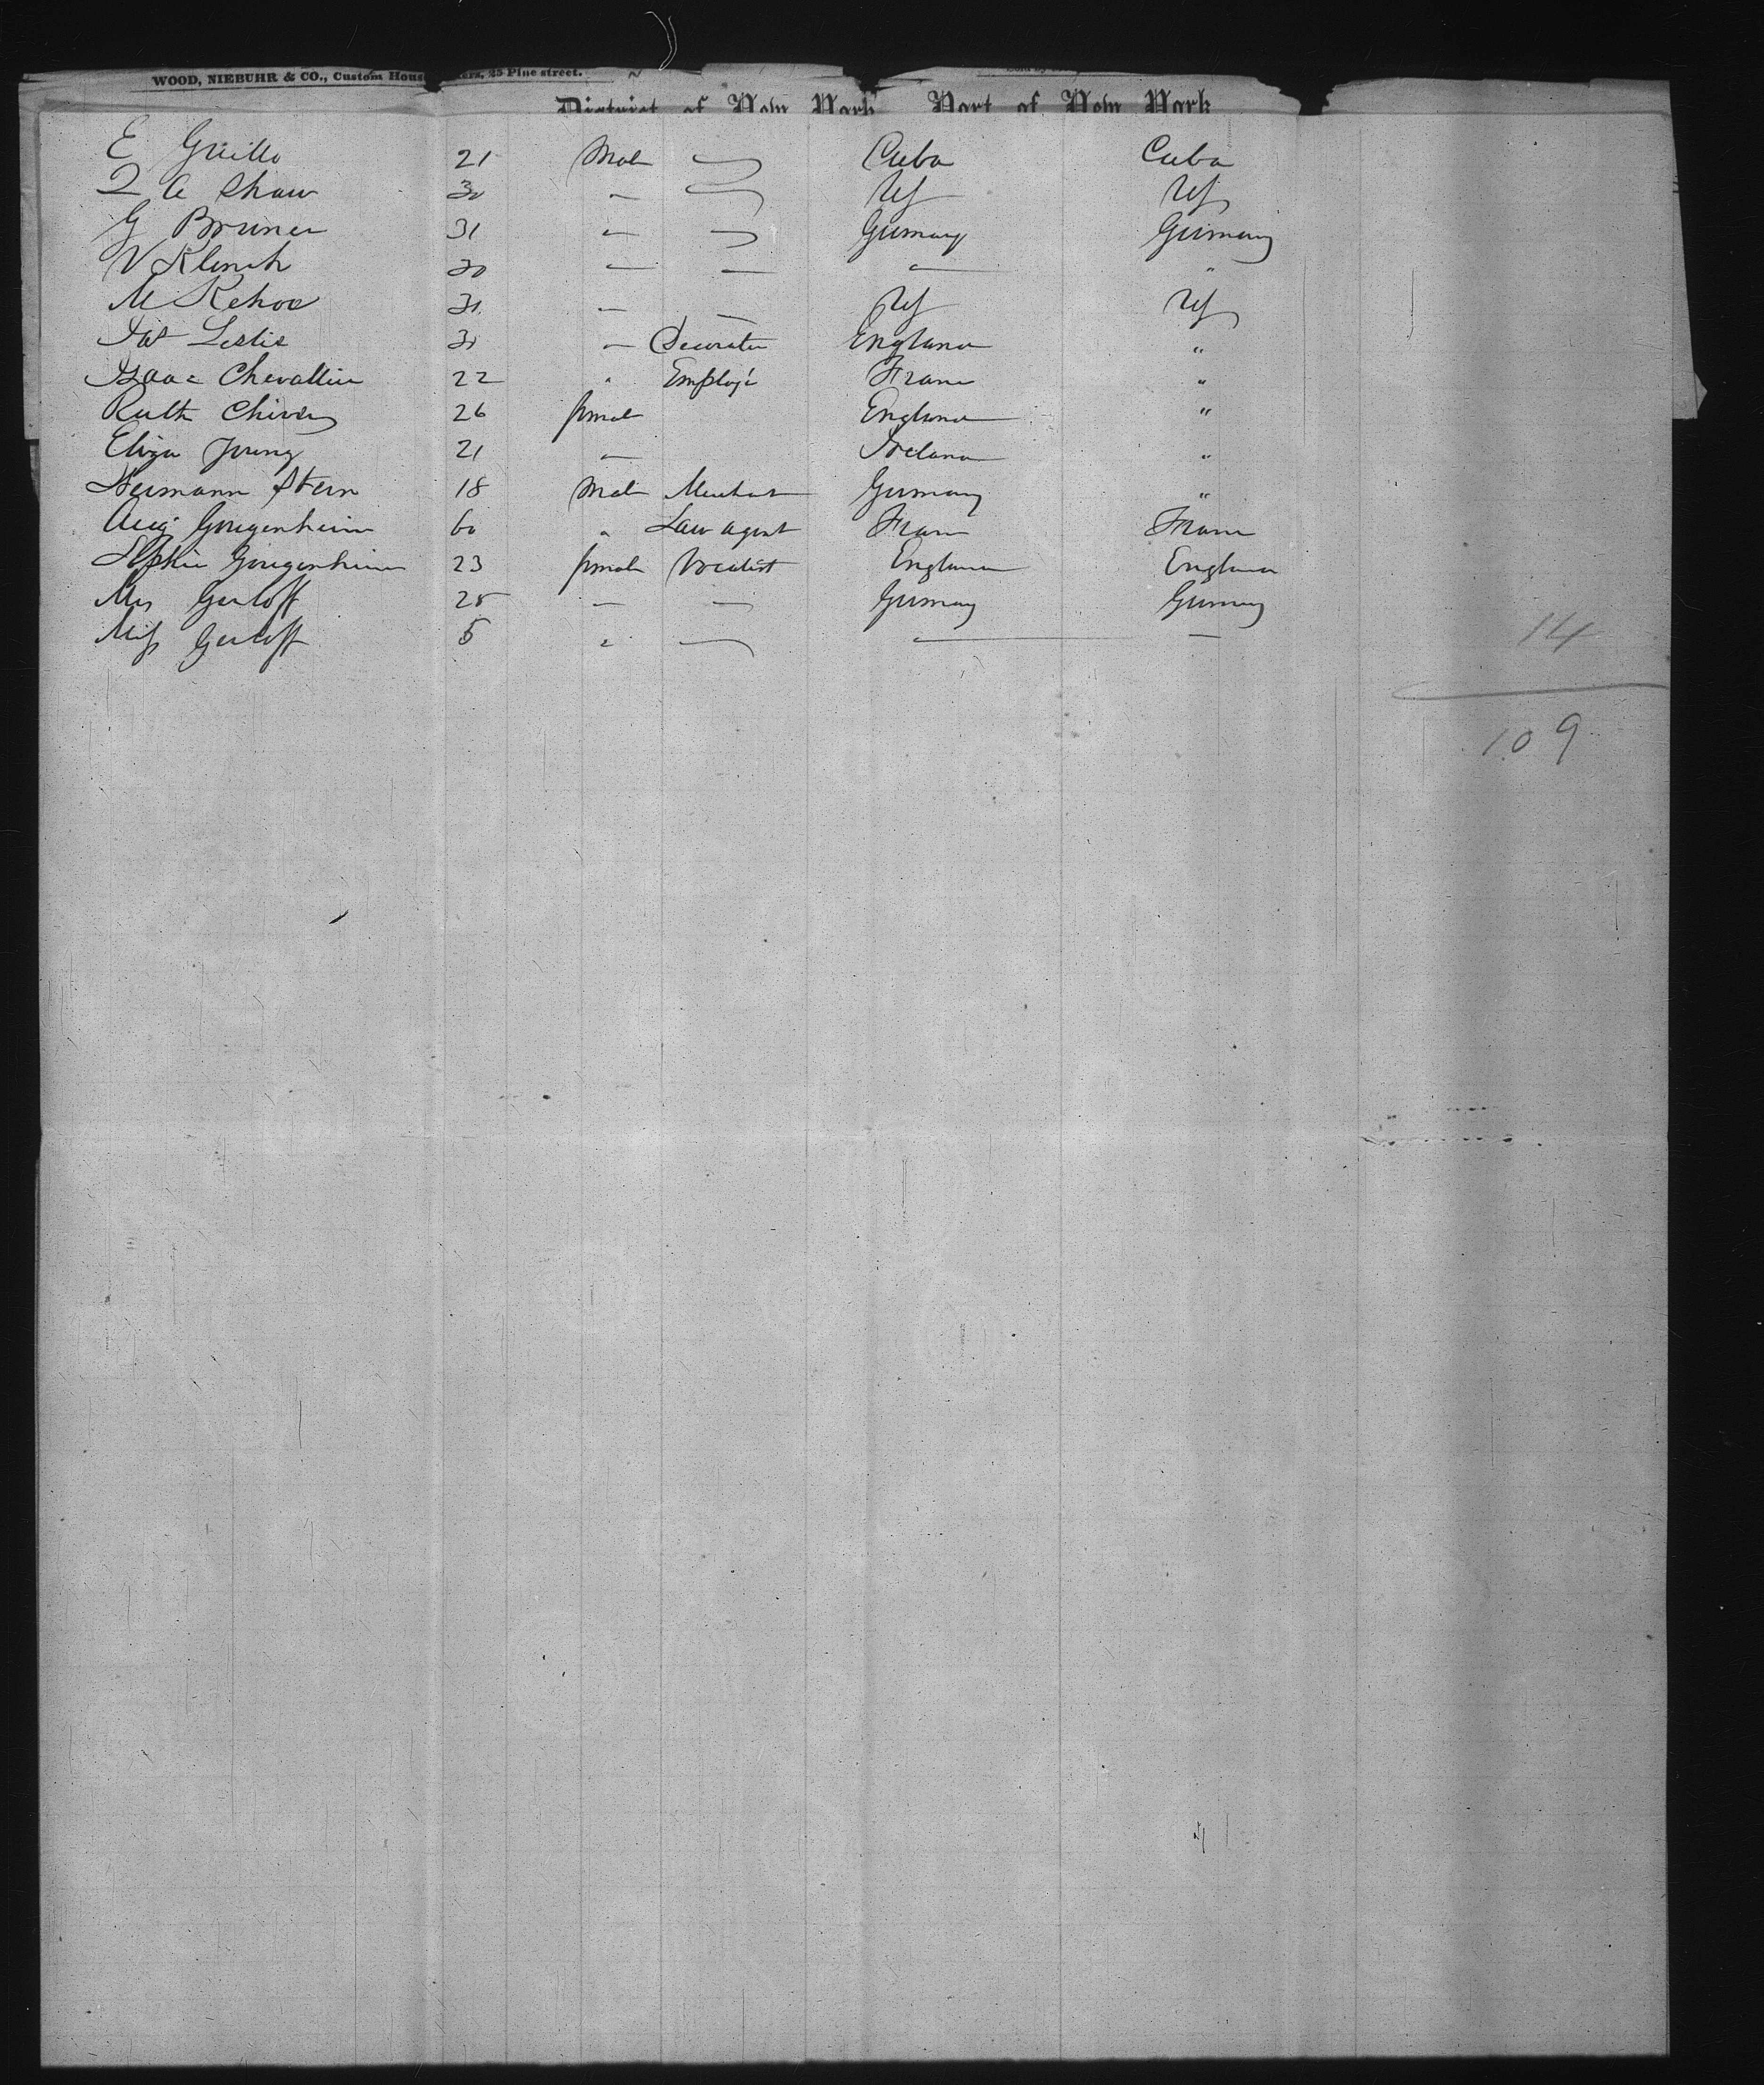 WOOD, NIEBUHR & CO., Custom Hous ers, 25 Pine street.
District of New York Port of New York
E Grillo 21 Male Cuba Cuba
Q A Shaw 30 — US US
G Bruner 31 — Germany Germany
V Klench 30 — — — "
M Kehoe 31 — — US US
Jas Leslie 31 — Decorator England "
Isaac Chevallier 22 " Employé France "
Ruth Chivers 26 female England "
Eliza Young 21 — Ireland "
Hermann Stern 18 Male Merchant Germany "
Aug Gougenheim 60 " Law agent France France
Sophie Gougenheim 23 female Vocalist England England
Mrs Gerloff 25 — — Germany Germany
Miss Gerloff 5 " — — —
14
109